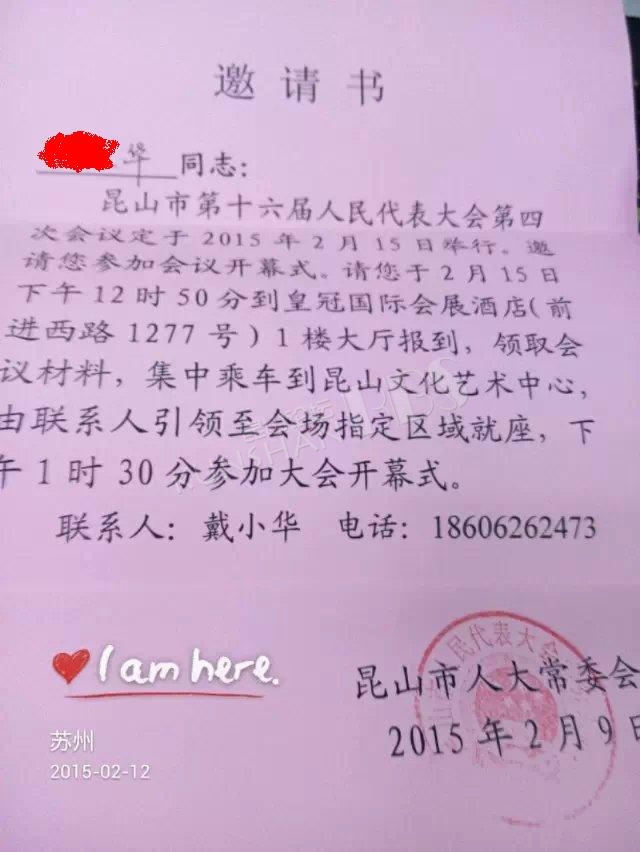 邀请书
华 同志：
昆山市第十六届人民代表大会第四
次会议定于 2015 年 2 月 15 日举行。邀
请您参加会议开幕式。请您于 2 月 15 日
下午 12 时 50 分到皇冠国际会展酒店（前
进西路 1277 号）1 楼大厅报到，领取会
议材料，集中乘车到昆山文化艺术中心，
由联系人引领至会场指定区域就座，下
午 1 时 30 分参加大会开幕式。
联系人：戴小华 电话：18606262473
I am here.
昆山市人大常委会
2015 年 2 月 9 日
苏州
2015-02-12